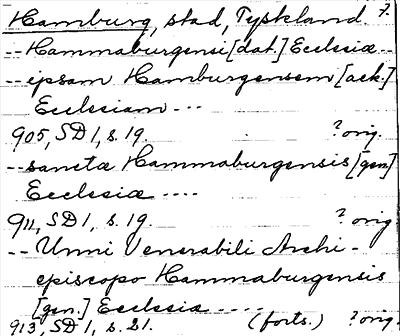 Hamburg, stad, Tyskland. 7.
-- Hammaburgensi [dat.] Ecclesiæ --
-- epsam Hamburgensem [ack.]
Ecclesiam ---
905, SD 1, s. 19. ? orig.
-- sanctæ Hammaburgensis [gen]
Ecclesiæ ----
911, SD 1, s. 19. ? orig
-- Unni Venerabili Archi-
episcopo Hammaburgensis
[gen.] Ecclesiæ ----
913, SD 1, s. 21. (forts.) ? orig.